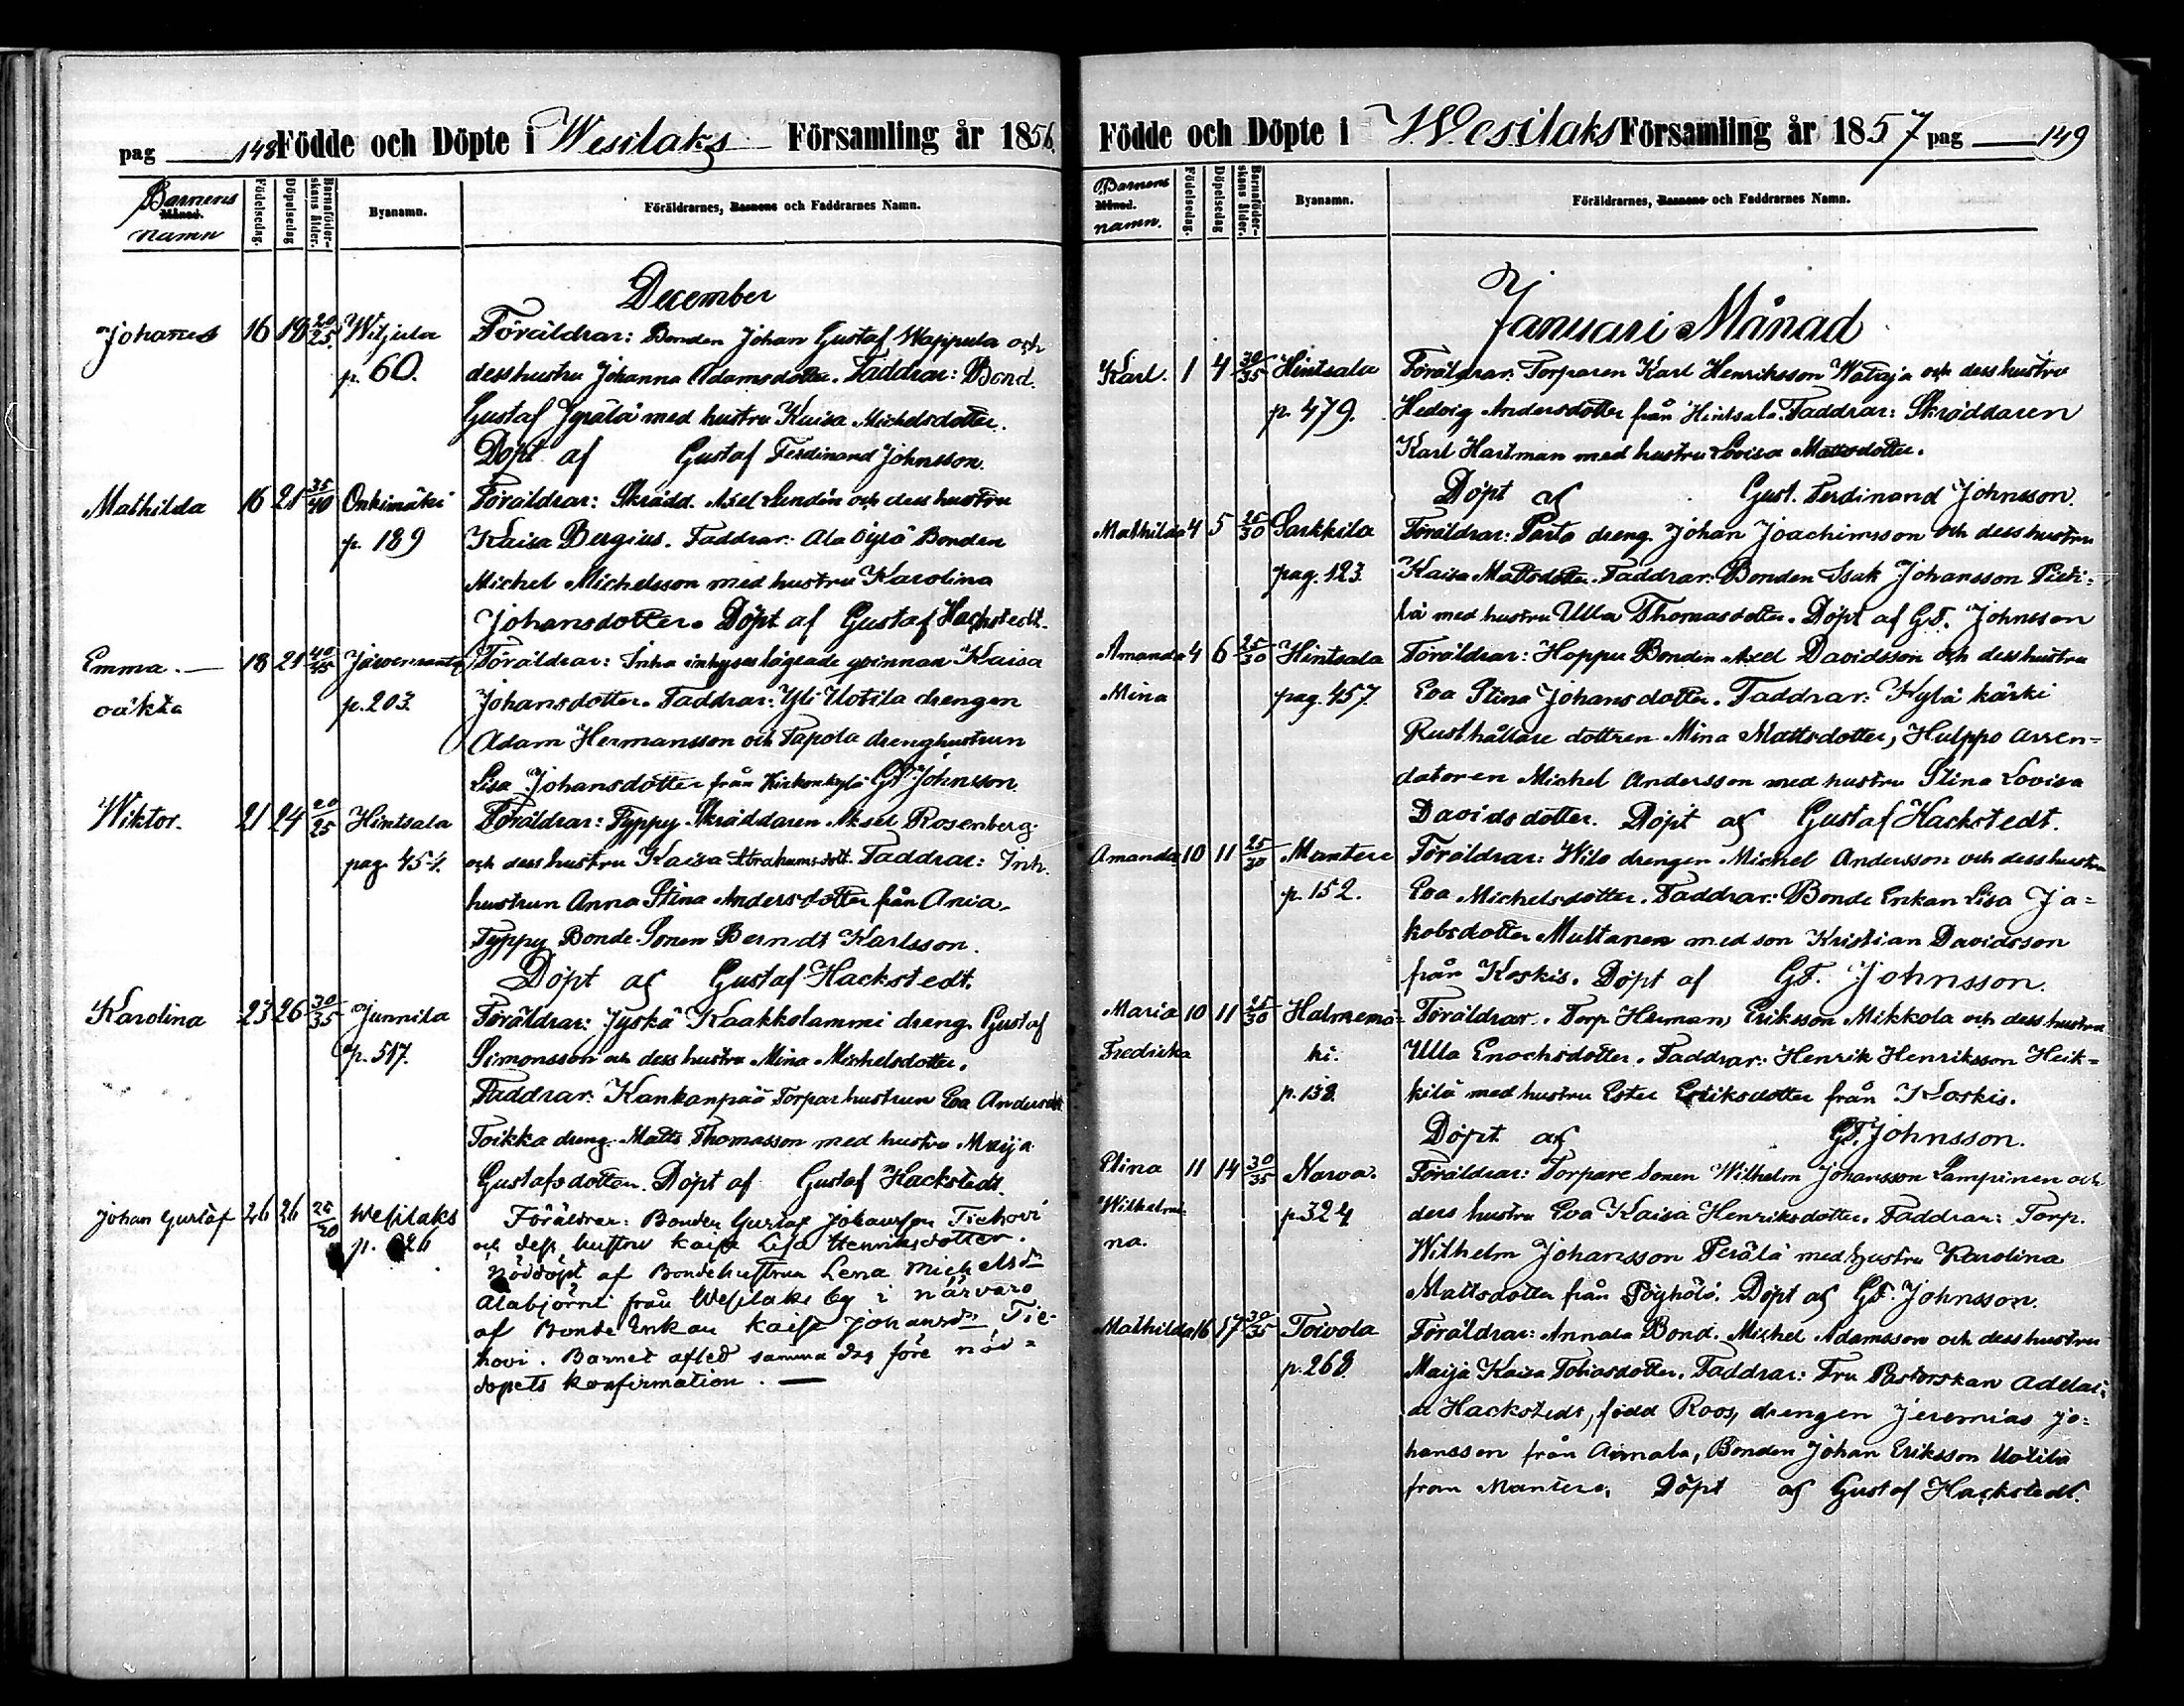 pag 148 Födde och Döpte i Wesilaks Församling år 1856.
Barnens
Månad.
namn
Födelsedag.
Döpelsedag
Barnaföder-
skans ålder.
Byanamn.
Föräldrarnes, Barnens och Faddrarnes Namn.
December
Johanes 16 18 20/25. Witjula Föräldrar: Bonden Johan Gustaf Wappula och
p. 60. dess hustru Johanna Adamsdotter. Faddrar: Bond.
Gustaf Jyrälä med hustru Kaisa Michelsdotter.
Döpt af Gustaf Ferdinand Johnsson.
Mathilda 16 21 35/40 Onkimäki Föräldrar: Skrädd. Axel Lundén och dess hustru
p. 189 Kaisa Bergius. Faddrar: Ala Bonden
Michel Michelsson med hustru Karolina
Johansdotter. Döpt af Gustaf Hackstedt.
Emma.— 18 21 40/45 Järvenranta Föräldrar: Inha inhyses lägrade qvinnan Kaisa
oäkta p. 203. Johansdotter. Faddrar: Yli Uotila drengen
Adam Hermansson och Tapola drenghustrun
Lisa Johansdotter från Kirkonkylä GF Johnsson.
Wiktor. 21 24 20/25 Hintsala Föräldrar: Typpy Skräddaren Aksel Rosenberg
pag. 454. och dess hustru Kaisa Abrahamsdott. Faddrar: Inh.
hustrun Anna Stina Andersdotter från Ania.
Typpy Bonde Sonen Berndt Karlsson.
Döpt af Gustaf Hackstedt.
Karolina 23 26 30/35 Junnila Föräldrar: Jyskä Kaakkolammi dreng. Gustaf
p. 517. Simonsson och dess hustru Mina Michelsdotter.
Faddrar: Kankanpää Torparhustrun Eva Andersdr
Toikka dreng. Matts Thomasson med hustru Maija
Gustafsdotter. Döpt af Gustaf Hackstedt.
Johan Gustaf 26 26 Wesilaks Föräldrar: Bonden Gustaf Johansson Tiehovi
p. 226 och dess hustru Kaisa Lisa Henriksdotter.
Nöddöpt af Bondehustrun Lena Michelsdr
Alabjörni från Wesilaks by i närvaro
af Bonde Enkan Kaisa Johansdr Tie-
hovi. Barnet afled samma dag före nöd-
dopets konfirmation. —
Födde och Döpte i Wesilaks Församling år 1857 pag 149
Barnens
Månad.
namn.
Födelsedag.
Döpelsedag
Barnaföder-
skans ålder.
Byanamn.
Föräldrarnes, Barnens och Faddrarnes Namn.
Januari Månad
Karl. 1 4 30/35 Hintsala Föräldrar: Torparen Karl Henriksson Wataja och dess hustru
p. 479. Hedvig Andersdotter från Hintsala. Faddrar: Skräddaren
Karl Hartman med hustru Lovisa Mattsdotter.
Döpt af Gust. Ferdinand Johnsson.
Mathilda 4 5 25/30 Sarkkila Föräldrar: Parto dreng. Johan Joachimsson och dess hustru
pag. 123. Kaisa Mattsdotter. Faddrar: Bonden Isak Johansson Pieti-
lä med hustru Ulla Thomasdotter. Döpt af GF. Johnsson
Amanda 4 6 25/30 Hintsala Föräldrar: Hoppu Bonden Axel Davidsson och dess hustru
Mina pag. 457. Eva Stina Johansdotter. Faddrar: Kylä kärki
Rusthållare dottren Mina Mattsdotter, Hulppo arren-
datoren Michel Andersson med hustru Stina Lovisa
Davidsdotter. Döpt af Gustaf Hackstedt.
Amanda 10 11 25/30 Mantere Föräldrar: Wilo drengen Michel Andersson och dess hustru
p. 152. Eva Michelsdotter. Faddrar: Bonde Enkan Lisa Ja-
kobsdotter Multanen med son Kristian Davidsson
från Koskis. Döpt af GF. Johnsson.
Maria 10 11 25/30 Halmemä- Föräldrar. Torp Herman Eriksson Mikkola och dess hustru
Fredrika ki. Ulla Enochsdotter. Faddrar: Henrik Henriksson Heik-
p. 138. kilä med hustru Ester Eriksdotter från Koskis.
Döpt af GF. Johnsson.
Stina 11 14 30/35 Narva. Föräldrar: Torpare Sonen Wilhelm Johansson Lampinen och
Wilhelmi- p. 324 dess hustru Eva Kaisa Henriksdotter. Faddrar: Torp.
na. Wilhelm Johansson Perälä med hustru Karolina
Mattsdotter från Pöyhölö. Döpt af GF. Johnsson.
Mathilda 16 17 30/35 Toivola Föräldrar: Annala Bond. Michel Adamsson och dess hustru
p. 268. Maija Kaisa Tobiasdotter. Faddrar: Fru Pastorskan Adelai-
de Hackstedt, född Roos, drengen Jeremias Jo-
hansson från Annala, Bonden Johan Eriksson Uotila
från Mantere. Döpt af Gustaf Hackstedt.